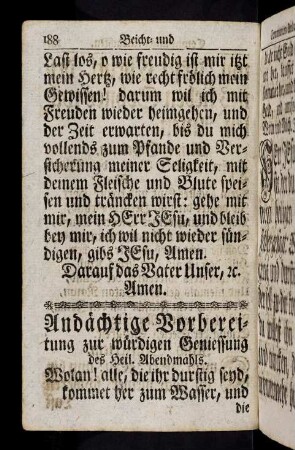 188 Beicht- und
Last los, o wie freudig ist mir itzt
mein Hertz, wie recht frölich mein
Gewissen! darum wil ich mit
Freuden wieder heimgehen, und
der Zeit erwarten, bis du mich
vollends zum Pfande und Ver-
sicherung meiner Seligkeit, mit
deinem Fleische und Blute spei-
sen und träncken wirst: gehe mit
mir, mein HErr JEsu, und bleib
bey mir, ich wil nicht wieder sün-
digen, gibs JEsu, Amen.
Darauf das Vater Unser, ꝛc.
Amen.
Andächtige Vorberei-
tung zur würdigen Geniessung
des Heil. Abendmahls.
Wolan! alle, die ihr durstig seyd,
kommet her zum Wasser, und
die